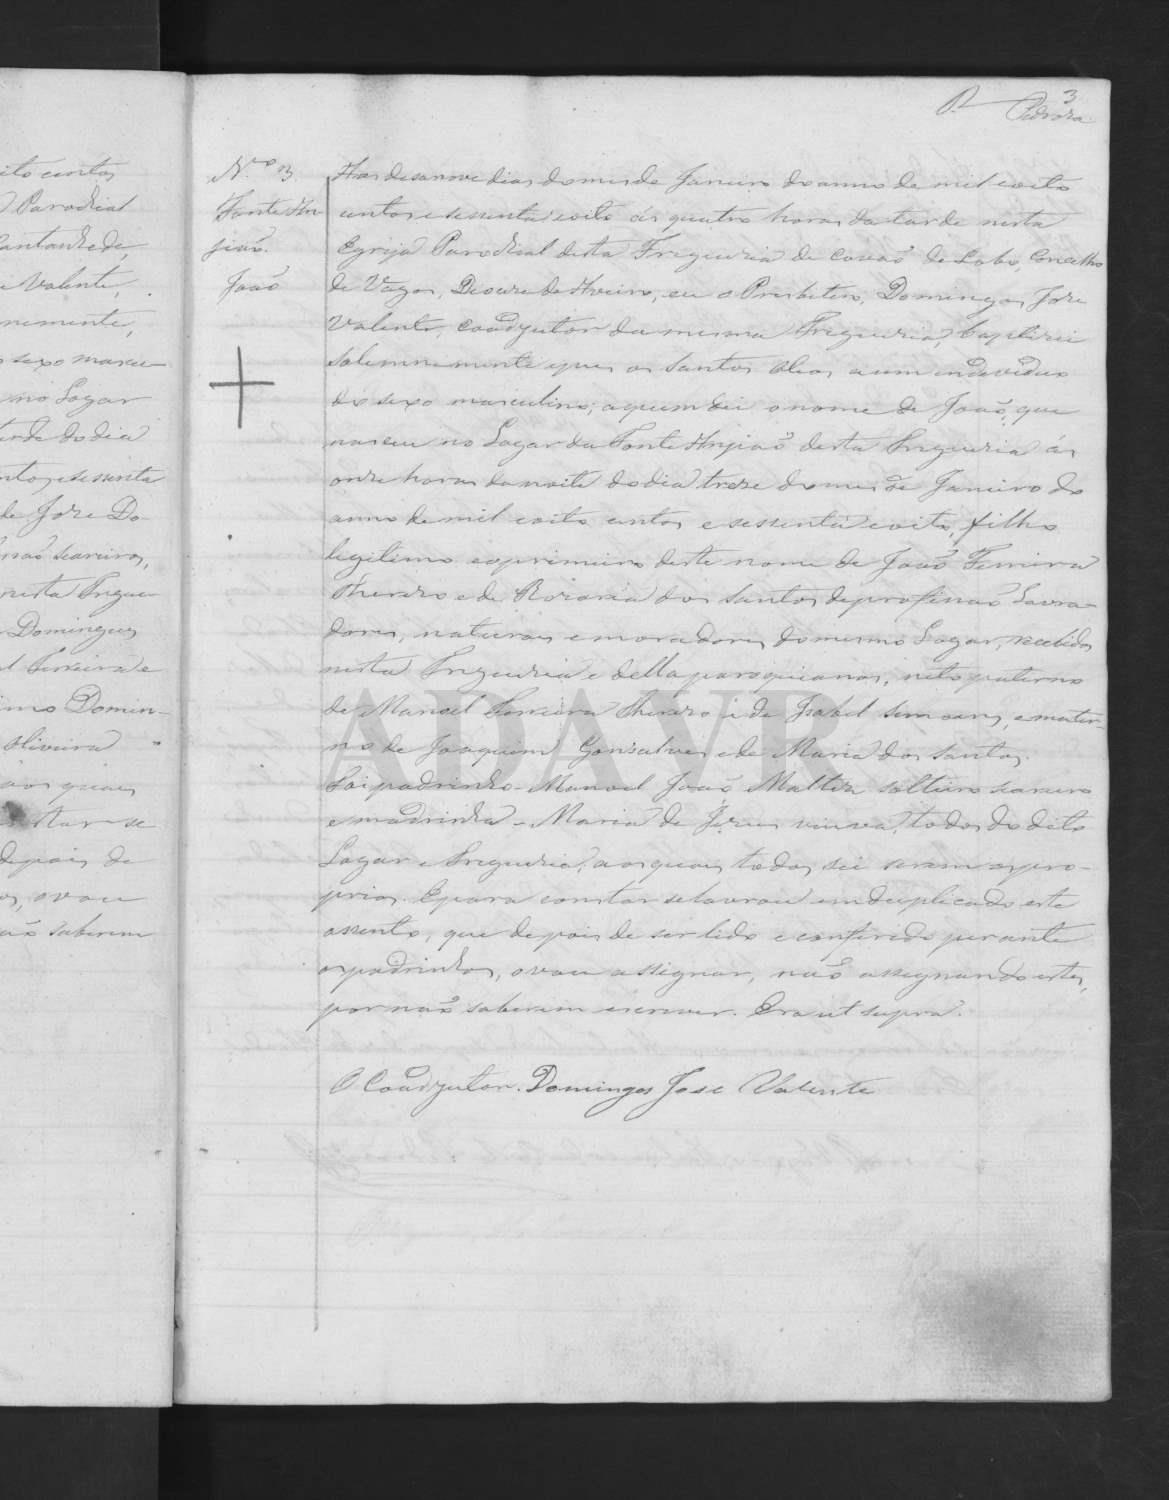 3
R. Pedroza
ito centos
Parochial
Cantanhede,
e Valente,
nemente,
sexo mascu-
no Logar
arde do dia
ntos e sessenta
de Jose Do-
nesta Fregue
Domingues
l Ferreira e
Domin-
Oliveira
aos quaes
star se
depois de
os, o vou
não saberem
N.º 3.
Fonte An
gião.
João
Aos desanove dias do mes de Janeiro do anno de mil e oito
centos e sessenta e oito ás quatro horas da tarde nesta
Egreja Parochial desta Freguezia de Covão de Lobo, Concelho
de Vagos, Diocese de Aveiro, eu o Presbitero, Domingos Jose
Valente, Coadjutor da mesma Freguezia, baptizei
solemnemente e pus os Santos Oleos a um individuo
do sexo masculino, a quem dei o nome de João, que
nasceu no Logar da Fonte Angião desta Freguezia ás
onze horas da noite do dia treze do mes de Janeiro do
anno de mil e oito centos e sessenta e oito, filho
legitimo e o primeiro deste nome de João Ferreira
e de Rozaria dos Santos de profissão Lavra-
dores, naturaes e moradores do mesmo Logar, recebidos
nesta Freguezia e della paroquianos, neto paterno
de Manoel Ferreira e de Isabel Simoens, e mater-
no de Joaquim Gonsalves e de Maria dos Santos.
Foi padrinho - Manoel João solteiro seareiro
e madrinha - Maria de Jezus viuva, todos do dito
Logar e Freguezia, aos quaes todos sei serem os pro-
prios. E para constar se lavrou em duplicado este
assento, que depois de ser lido e conferido perante
os padrinhos, o vou assignar, não assignando estes,
por não saberem escrever. Era ut supra.
O Coadjutor. Domingos Jose Valente
ADAVR